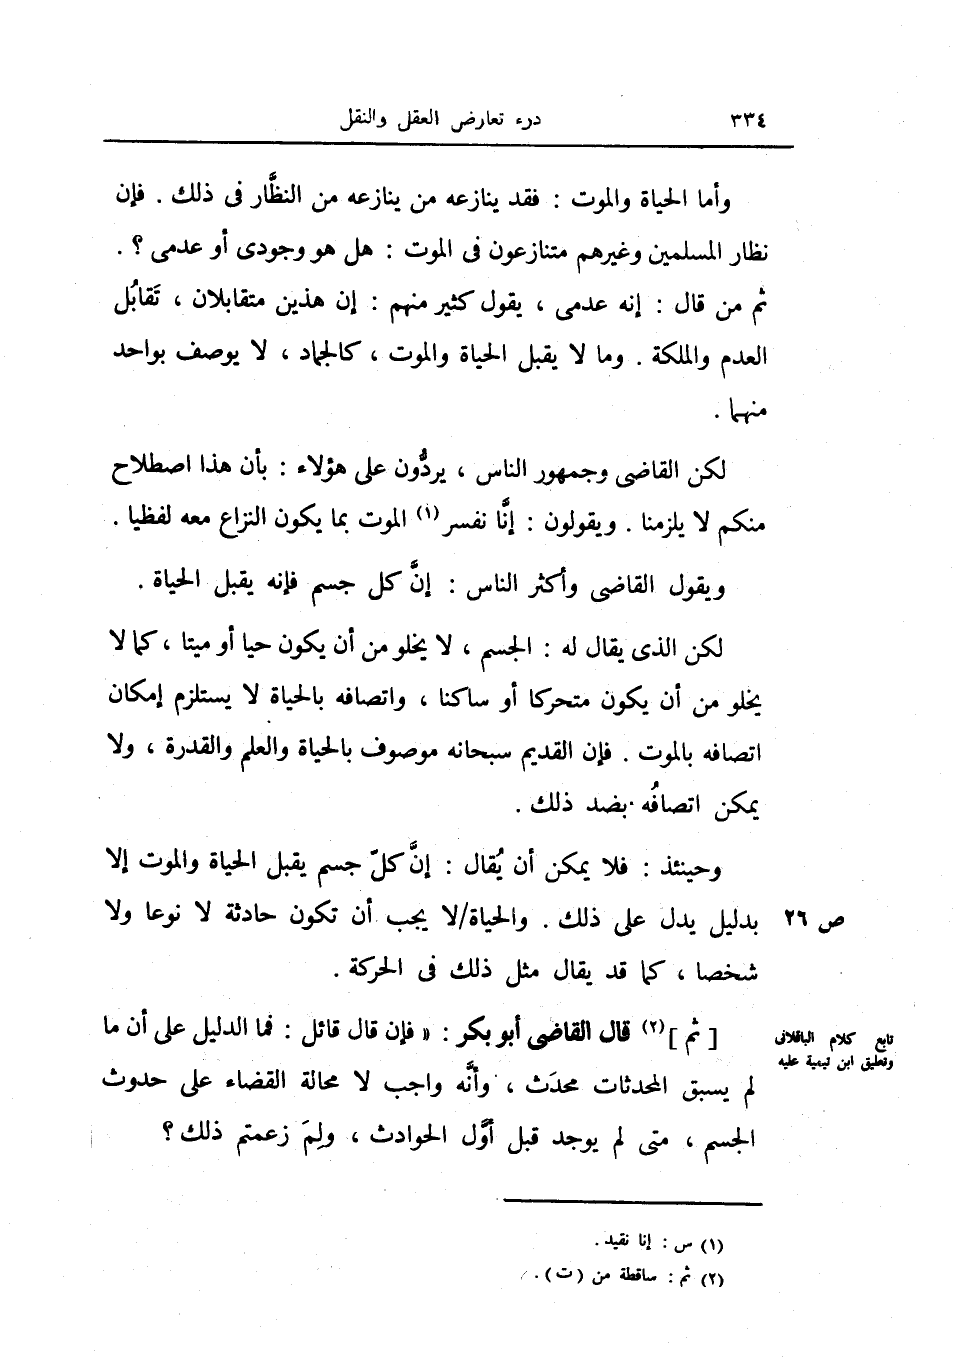 ٣٣٤ درء تعارض العقل والنقل
وأما الحياة والموت : فقد ينازعه من ينازعه من النظَّار فى ذلك . فإن
نظار المسلمين وغيرهم متنازعون فى الموت : هل هو وجودى أو عدمى ؟ .
ثم من قال : إنه عدمى ، يقول كثير منهم : إن هذين متقابلان ، تَقابُل
العدم والملكة . وما لا يقبل الحياة والموت ، كالجماد ، لا يوصف بواحد
منهما .
لكن القاضى وجمهور الناس ، يردُّون على هؤلاء : بأن هذا اصطلاح
منكم لا يلزمنا . ويقولون : إنَّا نفسر (١) الموت بما يكون النزاع معه لفظيا .
ويقول القاضى وأكثر الناس : إنَّ كل جسم فإنه يقبل الحياة .
لكن الذى يقال له : الجسم ، لا يخلو من أن يكون حيا أو ميتا ، كما لا
يخلو من أن يكون متحركا أو ساكنا ، واتصافه بالحياة لا يستلزم إمكان
اتصافه بالموت . فإن القديم سبحانه موصوف بالحياة والعلم والقدرة ، ولا
يمكن اتصافُه بضد ذلك .
وحينئذ : فلا يمكن أن يُقال : إنَّ كلّ جسم يقبل الحياة والموت إلا
ص ٢٦ بدليل يدل على ذلك . والحياة/لا يجب أن تكون حادثة لا نوعا ولا
شخصا ، كما قد يقال مثل ذلك فى الحركة .
تابع كلام الباقلانى
وتعليق ابن تيمية عليه
[ ثم ] (٢) قال القاضى أبو بكر : « فإن قال قائل : فما الدليل على أن ما
لم يسبق المحدثات محدَث ، وأنَّه واجب لا محالة القضاء على حدوث
الجسم ، متى لم يوجد قبل أوَّل الحوادث ، ولِمَ زعمتم ذلك ؟
(١) س : إنا نقيد .
(٢) ثم : ساقطة من (ت) .